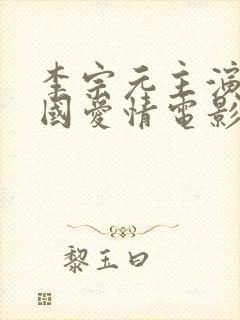 李宗元主演
國愛情電影
黎玉曰